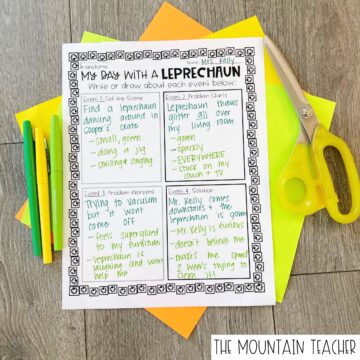 Brainstorm
Name: Mrs. Kelly
MY DAY WITH A LEPRECHAUN
Write or draw about each event below.
Event 1: Set the Scene
Find a leprechaun
dancing around in
Cooper's crate
- small, green
- doing a jig
- smiling + singing
Event 2: Problem Starts
Leprechaun throws
glitter all over
my living room
- green
- sparkly
- EVERYWHERE
- stuck on my
couch + TV
Event 3: Problem Worsens
Trying to vacuum
but it won't
come off
- Feels superglued
to my furniture
- leprechaun is
laughing and won't
help me
Event 4: Solution
Mr. Kelly comes
downstairs + the
leprechaun is gone
- Mr. Kelly is furious
- doesn't believe me
- makes me spend
2 hours trying to
clean it!
THE MOUNTAIN TEACHER